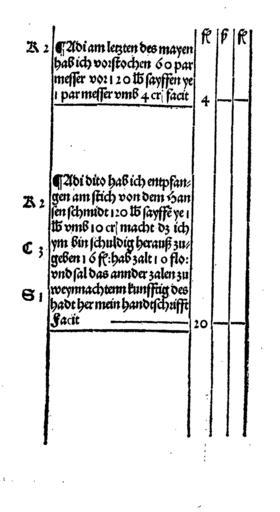 fl ß fl
K 2 ¶Adi am letzten des mayen
hab ich vorstochen 60 par
messer vor 120 lb sayffen ye
1 par messer vmb 4 cr facit 4
¶Adi dito hab ich entpfan⸗
K 2 gen am stich von dem Han
sen schmidt 120 lb sayffe ye 1
lb vmb 10 cr macht dz ich
C 3 ym bin schuldig herauß zu⸗
geben 16 fl: hab zalt 10 flo:
vnd sal das annder zalen zu
S 1 weynnachtenn kunfftig des
hadt her mein handtschrifft
Facit 20